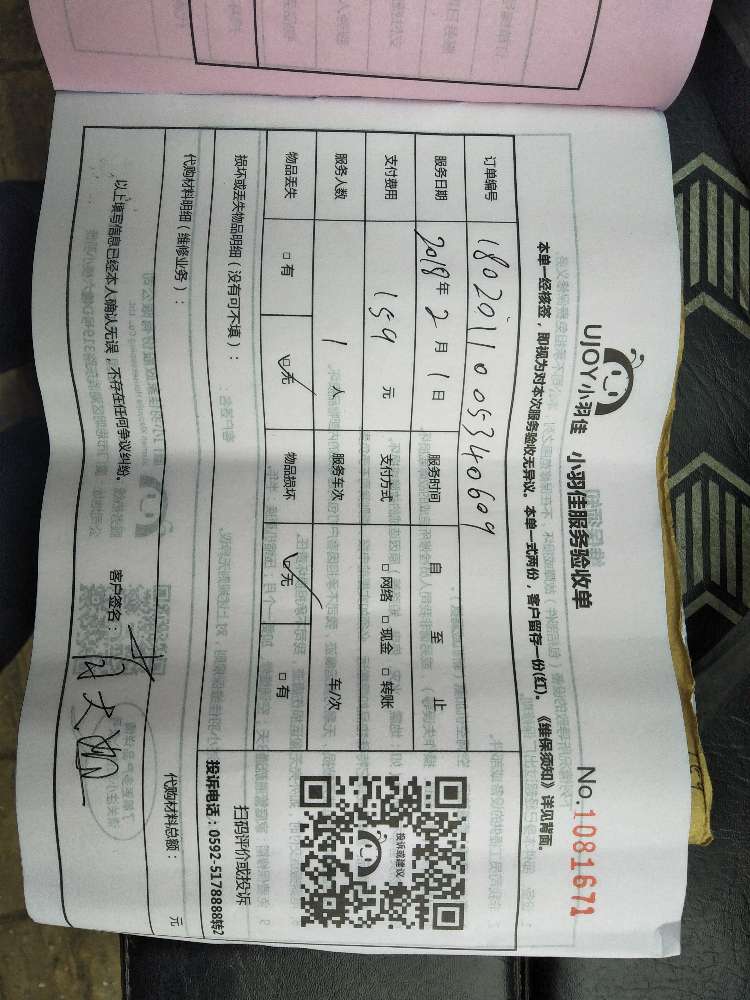 UJOY小羽佳 小羽佳服务验收单
No.1081671
本单一经核签，即视为对本次服务验收无异议。本单一式两份，客户留存一份(红)。《维保须知》详见背面。
订单编号 1802011005340609
服务日期 2018年2月1日 服务时间 自 至 止
支付费用 159 元 支付方式 □网络 □现金 □转账
服务人数 1 人 服务车次 车/次
物品丢失 □有 ☑无 物品损坏 ☑无 □有
损坏或丢失物品明细（没有可不填）：
代购材料明细（维修业务）： 代购材料总额： 元
以上填写信息已经本人确认无误，不存在任何争议纠纷。 客户签名：
投诉或建议
扫码评价或投诉
投诉电话：0592-5178888转2